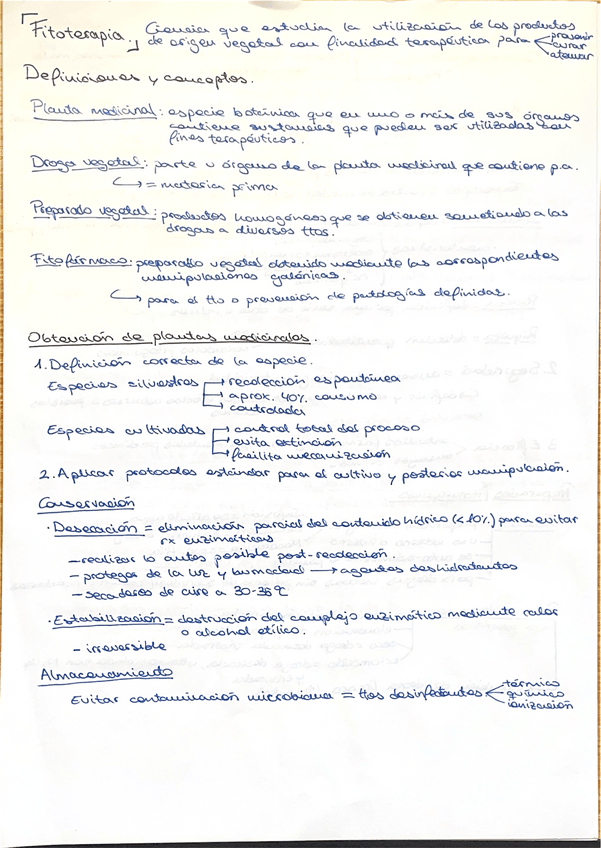 Fitoterapia. Ciencia que estudia la utilización de los productos
de origen vegetal con finalidad terapéutica para prevenir
curar
atenuar
Definiciones y conceptos.
Planta medicinal: especie botánica que en uno o más de sus órganos
contiene sustancias que pueden ser utilizadas con
fines terapéuticos.
Droga vegetal: parte u órgano de la planta medicinal que contiene p.a.
↳ = materia prima
Preparado vegetal: productos homogéneos que se obtienen sometiendo a las
drogas a diversos ttos.
Fitofármaco: preparado vegetal obtenido mediante las correspondientes
manipulaciones galénicas.
↳ para el tto o prevención de patologías definidas.
Obtención de plantas medicinales.
1. Definición correcta de la especie.
Especies silvestres → recolección espontánea
→ aprox. 40% consumo
→ controlada
Especies cultivadas → control total del proceso
→ evita extinción
→ facilita mecanización
2. Aplicar protocolos estándar para el cultivo y posterior manipulación.
Conservación
· Desecación = eliminación parcial del contenido hídrico (<10%) para evitar
rx enzimáticas
- realizar lo antes posible post-recolección.
- proteger de la luz y humedad → agentes deshidratantes
- secaderos de aire a 30-38ºC
· Estabilización = destrucción del complejo enzimático mediante calor
o alcohol etílico.
- irreversible
Almacenamiento
Evitar contaminación microbiana = ttos desinfectantes térmico
químico
ionización